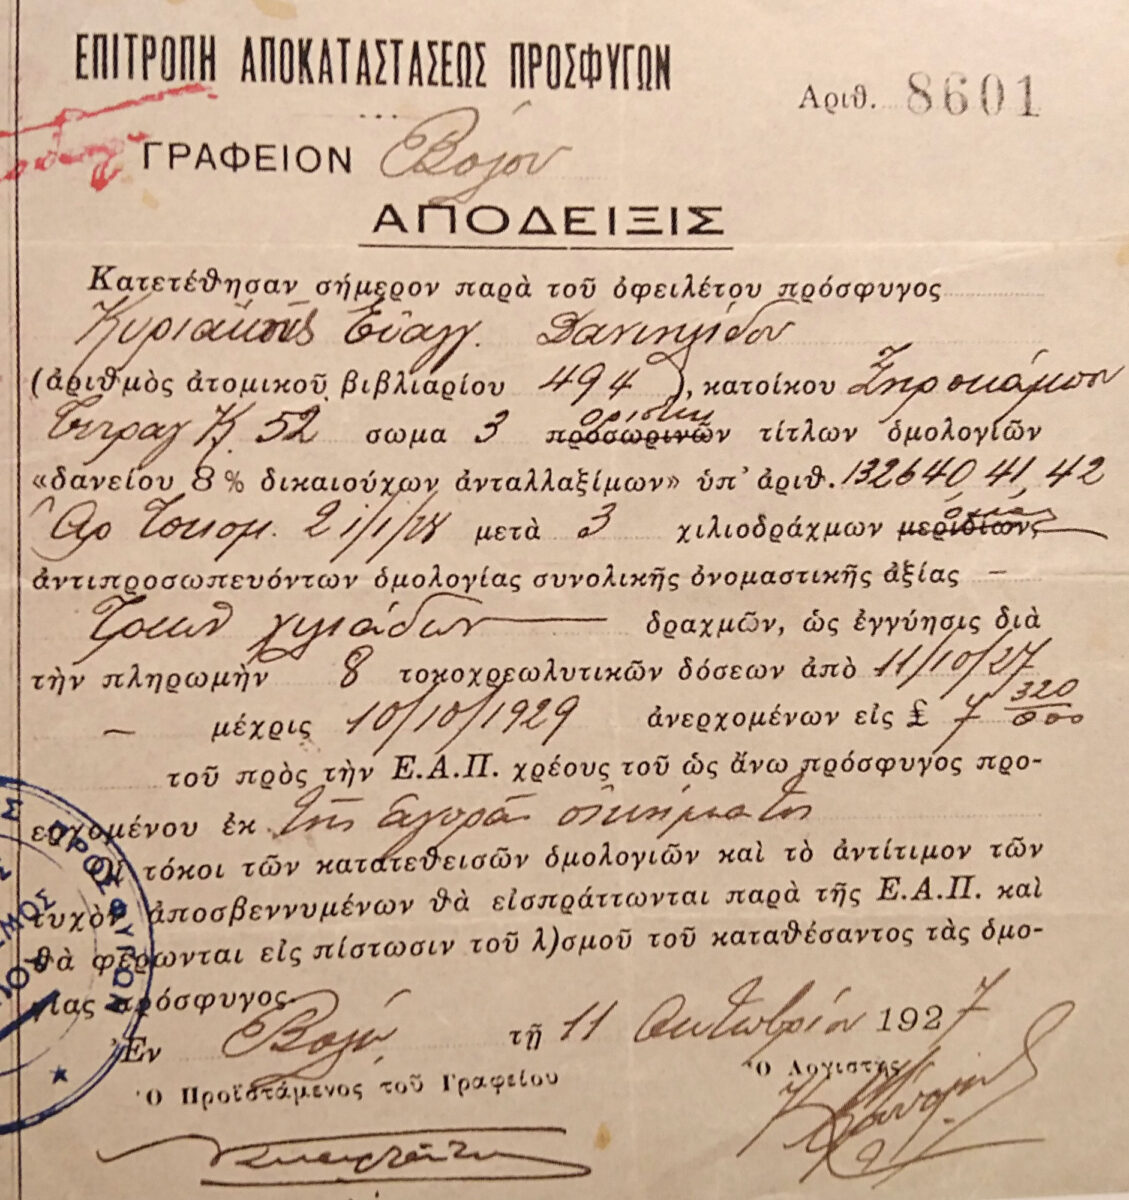 ΕΠΙΤΡΟΠΗ ΑΠΟΚΑΤΑΣΤΑΣΕΩΣ ΠΡΟΣΦΥΓΩΝ
Αριθ. 8601
ΓΡΑΦΕΙΟΝ Βόλου
ΑΠΟΔΕΙΞΙΣ
Κατετέθησαν σήμερον παρὰ τοῦ ὀφειλέτου πρόσφυγος
Κυριακῆς Εὐαγγ. Δανιηλίδου
(ἀριθμὸς ἀτομικοῦ βιβλιαρίου 494), κατοίκου Ξηροκάμπου
Τετραγ Κ 52 σωμα 3 προσωρινῶν ὁριστικ τίτλων ὁμολογιῶν
«δανείου 8 % δικαιούχων ἀνταλλαξίμων» ὑπ' ἀριθ. 132640, 41, 42
Αρ Τοκομ. 2 1/1/28 μετὰ 3 χιλιοδράχμων μεριδίων
ἀντιπροσωπευόντων ὁμολογίας συνολικῆς ὀνομαστικῆς ἀξίας —
Τριῶν χιλιάδων — δραχμῶν, ὡς ἐγγύησις διὰ
τὴν πληρωμὴν 8 τοκοχρεωλυτικῶν δόσεων ἀπὸ 11/10/27
— μέχρις 10/10/1929 ἀνερχομένων εἰς £ 7 320/000
τοῦ πρὸς τὴν Ε.Α.Π. χρέους τοῦ ὡς ἄνω πρόσφυγος προ-
ερχομένου ἐκ τῆς ἀγορᾶς οἰκήματος
Οἱ τόκοι τῶν κατατεθεισῶν ὁμολογιῶν καὶ τὸ ἀντίτιμον τῶν
τυχὸν ἀποσβεννυμένων θὰ εἰσπράττωνται παρὰ τῆς Ε.Α.Π. καὶ
θὰ φέρωνται εἰς πίστωσιν τοῦ λ)σμοῦ τοῦ καταθέσαντος τὰς ὁμο-
γίας πρόσφυγος.
Ἐν Βόλῳ τῇ 11 Ὀκτωβρίου 1927
Ὁ Προϊστάμενος τοῦ Γραφείου
Ὁ Λογιστής
ΠΡΟΣΦΥΓΩΝ